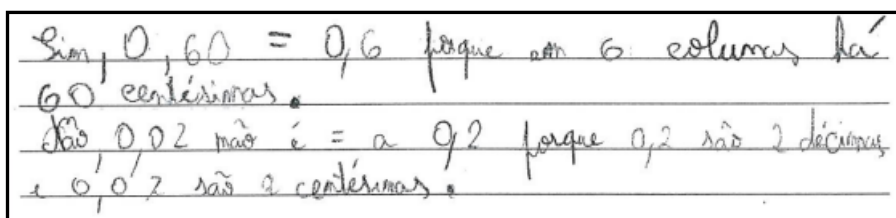 Sim, 0,60 = 0,6 porque em 6 colunas há
60 centésimas.
Não, 0,02 não é = a 0,2 porque 0,2 são 2 décimas
e 0,02 são 2 centésimas.